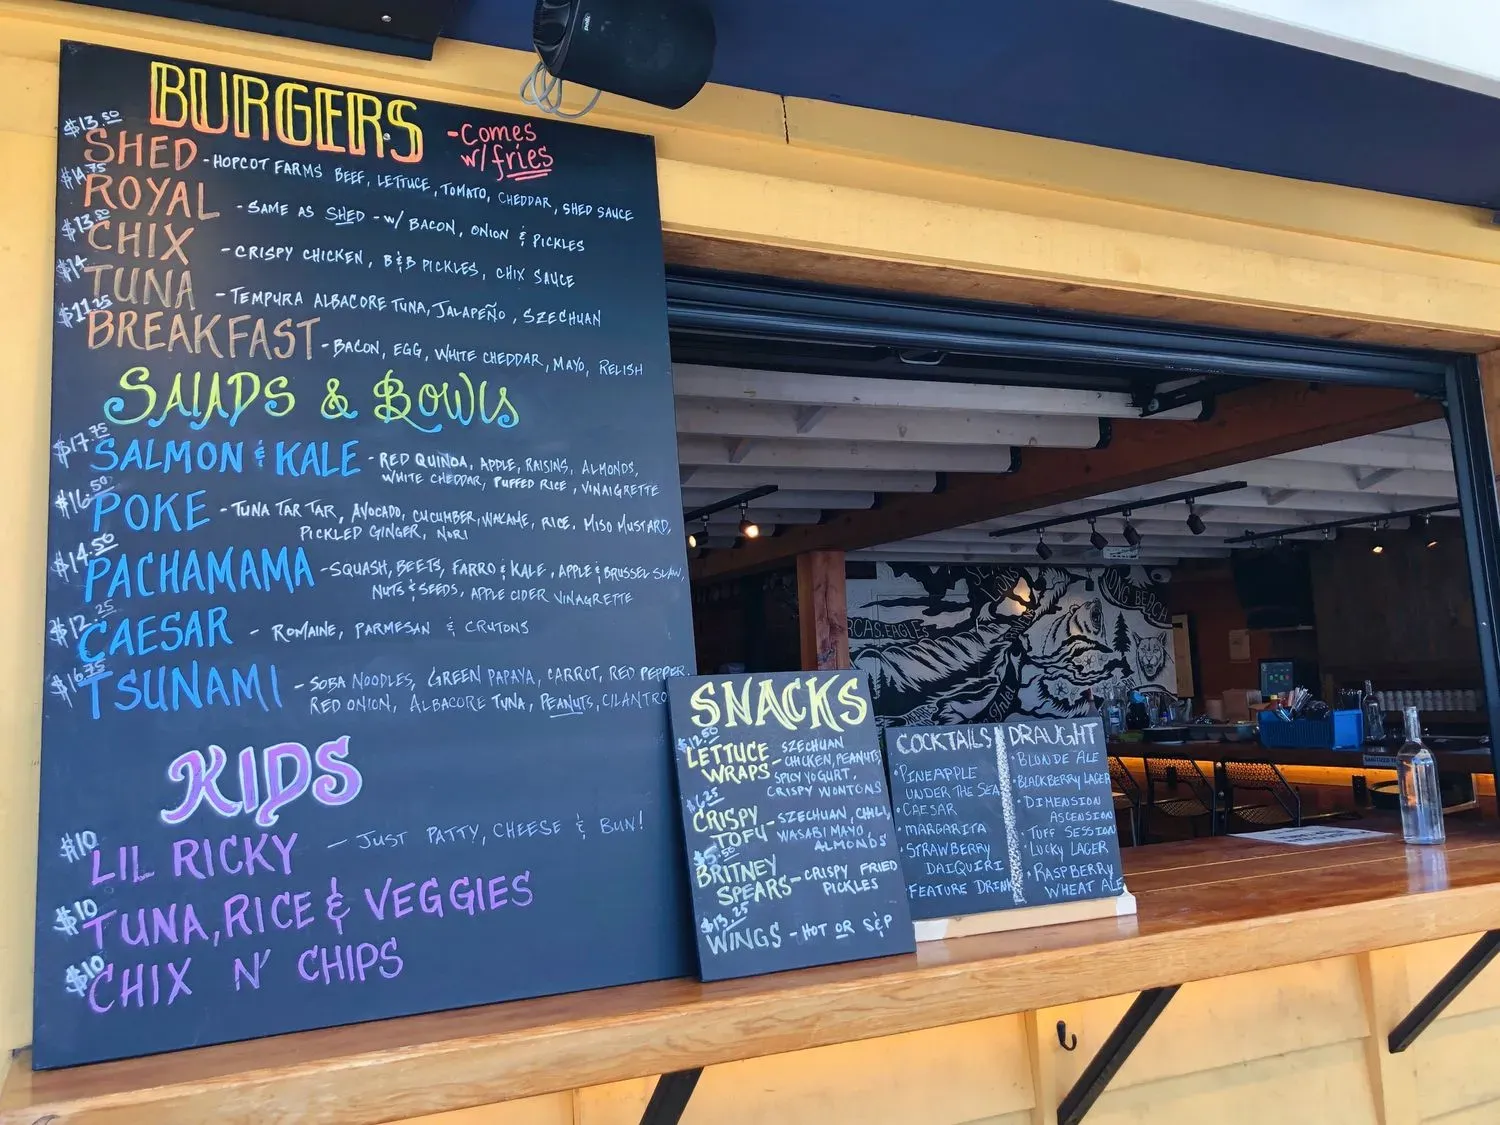 BURGERS
-Comes
w/fries
$13.50
SHED - HOPCOT FARMS BEEF, LETTUCE, TOMATO, CHEDDAR, SHED SAUCE
$14.75
ROYAL - SAME AS SHED - w/ BACON, ONION & PICKLES
$13.50
CHIX - CRISPY CHICKEN, B&B PICKLES, CHIX SAUCE
$14-
TUNA - TEMPURA ALBACORE TUNA, JALAPEÑO, SZECHUAN
$11.25
BREAKFAST - BACON, EGG, WHITE CHEDDAR, MAYO, RELISH
SAlADS & BOWlS
$17.75
SALMON & KALE - RED QUINOA, APPLE, RAISINS, ALMONDS,
WHITE CHEDDAR, PUFFED RICE, VINAIGRETTE
$16.50
POKE - TUNA TAR TAR, AVOCADO, CUCUMBER, WAKAME, RICE. MISO MUSTARD,
PICKLED GINGER, NORI
$14.50
PACHAMAMA - SQUASH, BEETS, FARRO & KALE, APPLE & BRUSSEL SLAW,
NUTS & SEEDS, APPLE CIDER VINAGRETTE
$12.25
CAESAR - ROMAINE, PARMESAN & CRUTONS
$16.75
TSUNAMI - SOBA NOODLES, GREEN PAPAYA, CARROT, RED PEPPER
RED ONION, ALBACORE TUNA, PEANUTS, CILANTRO
KIDS
$10
LIL RICKY - JUST PATTY, CHEESE & BUN!
$10
TUNA, RICE & VEGGIES
$10
CHIX N' CHIPS
SNACKS
$12.50
LETTUCE WRAPS - SZECHUAN
CHICKEN, PEANUTS,
SPICY YOGURT,
CRISPY WONTONS
$6.25
CRISPY TOFU - SZECHUAN, CHILI,
WASABI MAYO
ALMONDS
$5.50
BRITNEY SPEARS - CRISPY FRIED
PICKLES
$13.25
WINGS - HOT OR S&P
COCKTAILS
• PINEAPPLE
UNDER THE SEA
• CAESAR
• MARGARITA
• STRAWBERRY
DAIQUIRI
• FEATURE DRINK
DRAUGHT
• BLONDE ALE
• BLACKBERRY LAGER
• DIMENSION
ASCENSION
• TUFF SESSION
• LUCKY LAGER
• RASPBERRY
WHEAT ALE
EAGLES